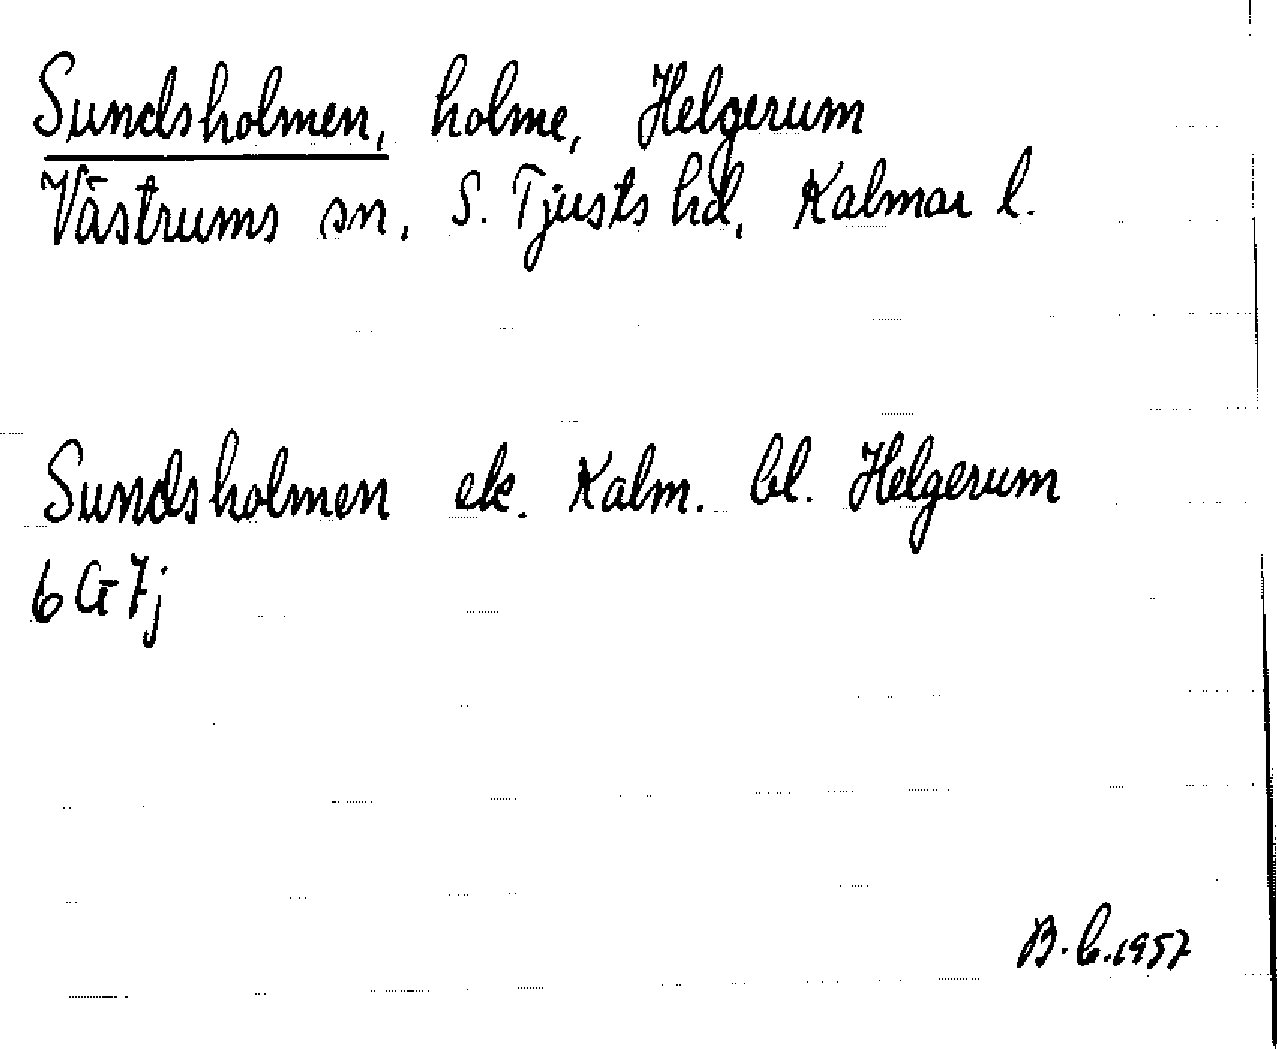 Sundsholmen, holme, Helgerum
Västrums sn, S. Tjusts hd, Kalmar l.
Sundsholmen ek. Kalm. bl. Helgerum
6 G 7j
B. C. 1957